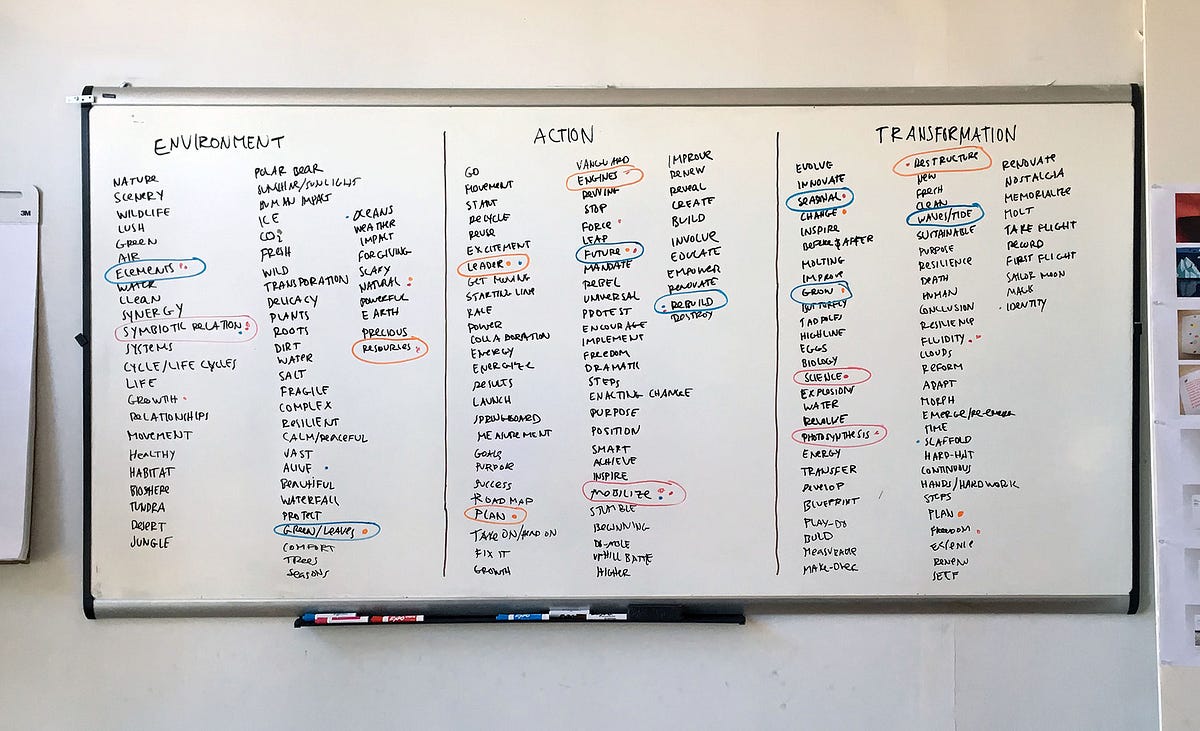 ENVIRONMENT
NATURE
SCENERY
WILDLIFE
LUSH
GREEN
AIR
ELEMENTS
WATER
CLEAN
SYNERGY
SYMBIOTIC RELATION
SYSTEMS
CYCLE/LIFE CYCLES
LIFE
GROWTH
RELATIONSHIPS
MOVEMENT
HEALTHY
HABITAT
BIOSPHERE
TUNDRA
DESERT
JUNGLE
POLAR BEAR
SUNSHINE/SUNLIGHT
HUMAN IMPACT
ICE
FRESH
WILD
TRANSPORATION
DELICACY
PLANTS
ROOTS
DIRT
WATER
SALT
FRAGILE
COMPLEX
RESILIENT
CALM/PEACEFUL
VAST
ALIVE
BEAUTIFUL
WATERFALL
PROTECT
GREEN/LEAVES
COMFORT
TREES
SEASONS
OCEANS
WEATHER
IMPACT
FORGIVING
SCARY
NATURAL
POWERFUL
EARTH
PRECIOUS
RESOURSES
ACTION
GO
MOVEMENT
START
RECYCLE
REUSE
EXCITEMENT
LEADER
GET MOVING
STARTING LINE
RACE
POWER
COLLABORATION
ENERGY
ENERGIZE
RESULTS
LAUNCH
SPRINGBOARD
MEASUREMENT
GOALS
PURPOSE
SUCCESS
ROADMAP
PLAN
TAKE ON/HEAD ON
FIX IT
GROWTH
VANGUARD
ENGINES
REVVING
STOP
FORCE
LEAP
FUTURE
MANDATE
REBEL
UNIVERSAL
PROTEST
ENCOURAGE
IMPLEMENT
FREEDOM
DRAMATIC
STEPS
ENACTING CHANGE
PURPOSE
POSITION
SMART
ACHIEVE
INSPIRE
MOBILIZE
STUMBLE
BEGINNING
UPHILL BATTLE
HIGHER
IMPROVE
RENEW
REVEAL
CREATE
BUILD
INVOLVE
EDUCATE
EMPOWER
RENOVATE
REBUILD
DESTROY
TRANSFORMATION
EVOLVE
INNOVATE
SEASONAL
CHANGE
INSPIRE
BEFORE & AFTER
MOLTING
IMPROVE
GROW
BUTTERFLY
TADPOLES
HIGHLINE
EGGS
BIOLOGY
SCIENCE
EXPLOSION
WATER
REVOLVE
PHOTOSYNTHESIS
ENERGY
TRANSFER
DEVELOP
BLUEPRINT
PLAY-DO
BUILD
MEASUREABLE
MAKE-OVER
RESTRUCTURE
NEW
FRESH
CLEAN
WAVES/TIDE
SUSTAINABLE
PURPOSE
RESILIENCE
DEATH
HUMAN
CONCLUSION
RESILIENCE
FLUIDITY
CLOUDS
REFORM
ADAPT
MORPH
EMERGE/RE-EMERGE
TIME
SCAFFOLD
HARD-HAT
CONTINUOUS
HANDS/HARDWORK
STEPS
PLAN
FREEDOM
RENEW
SELF
RENOVATE
NOSTALGIA
MEMORIALIZE
MOLT
TAKE FLIGHT
RECORD
FIRST FLIGHT
SAILOR MOON
MASK
IDENTITY
3M
EXPO
EXPO